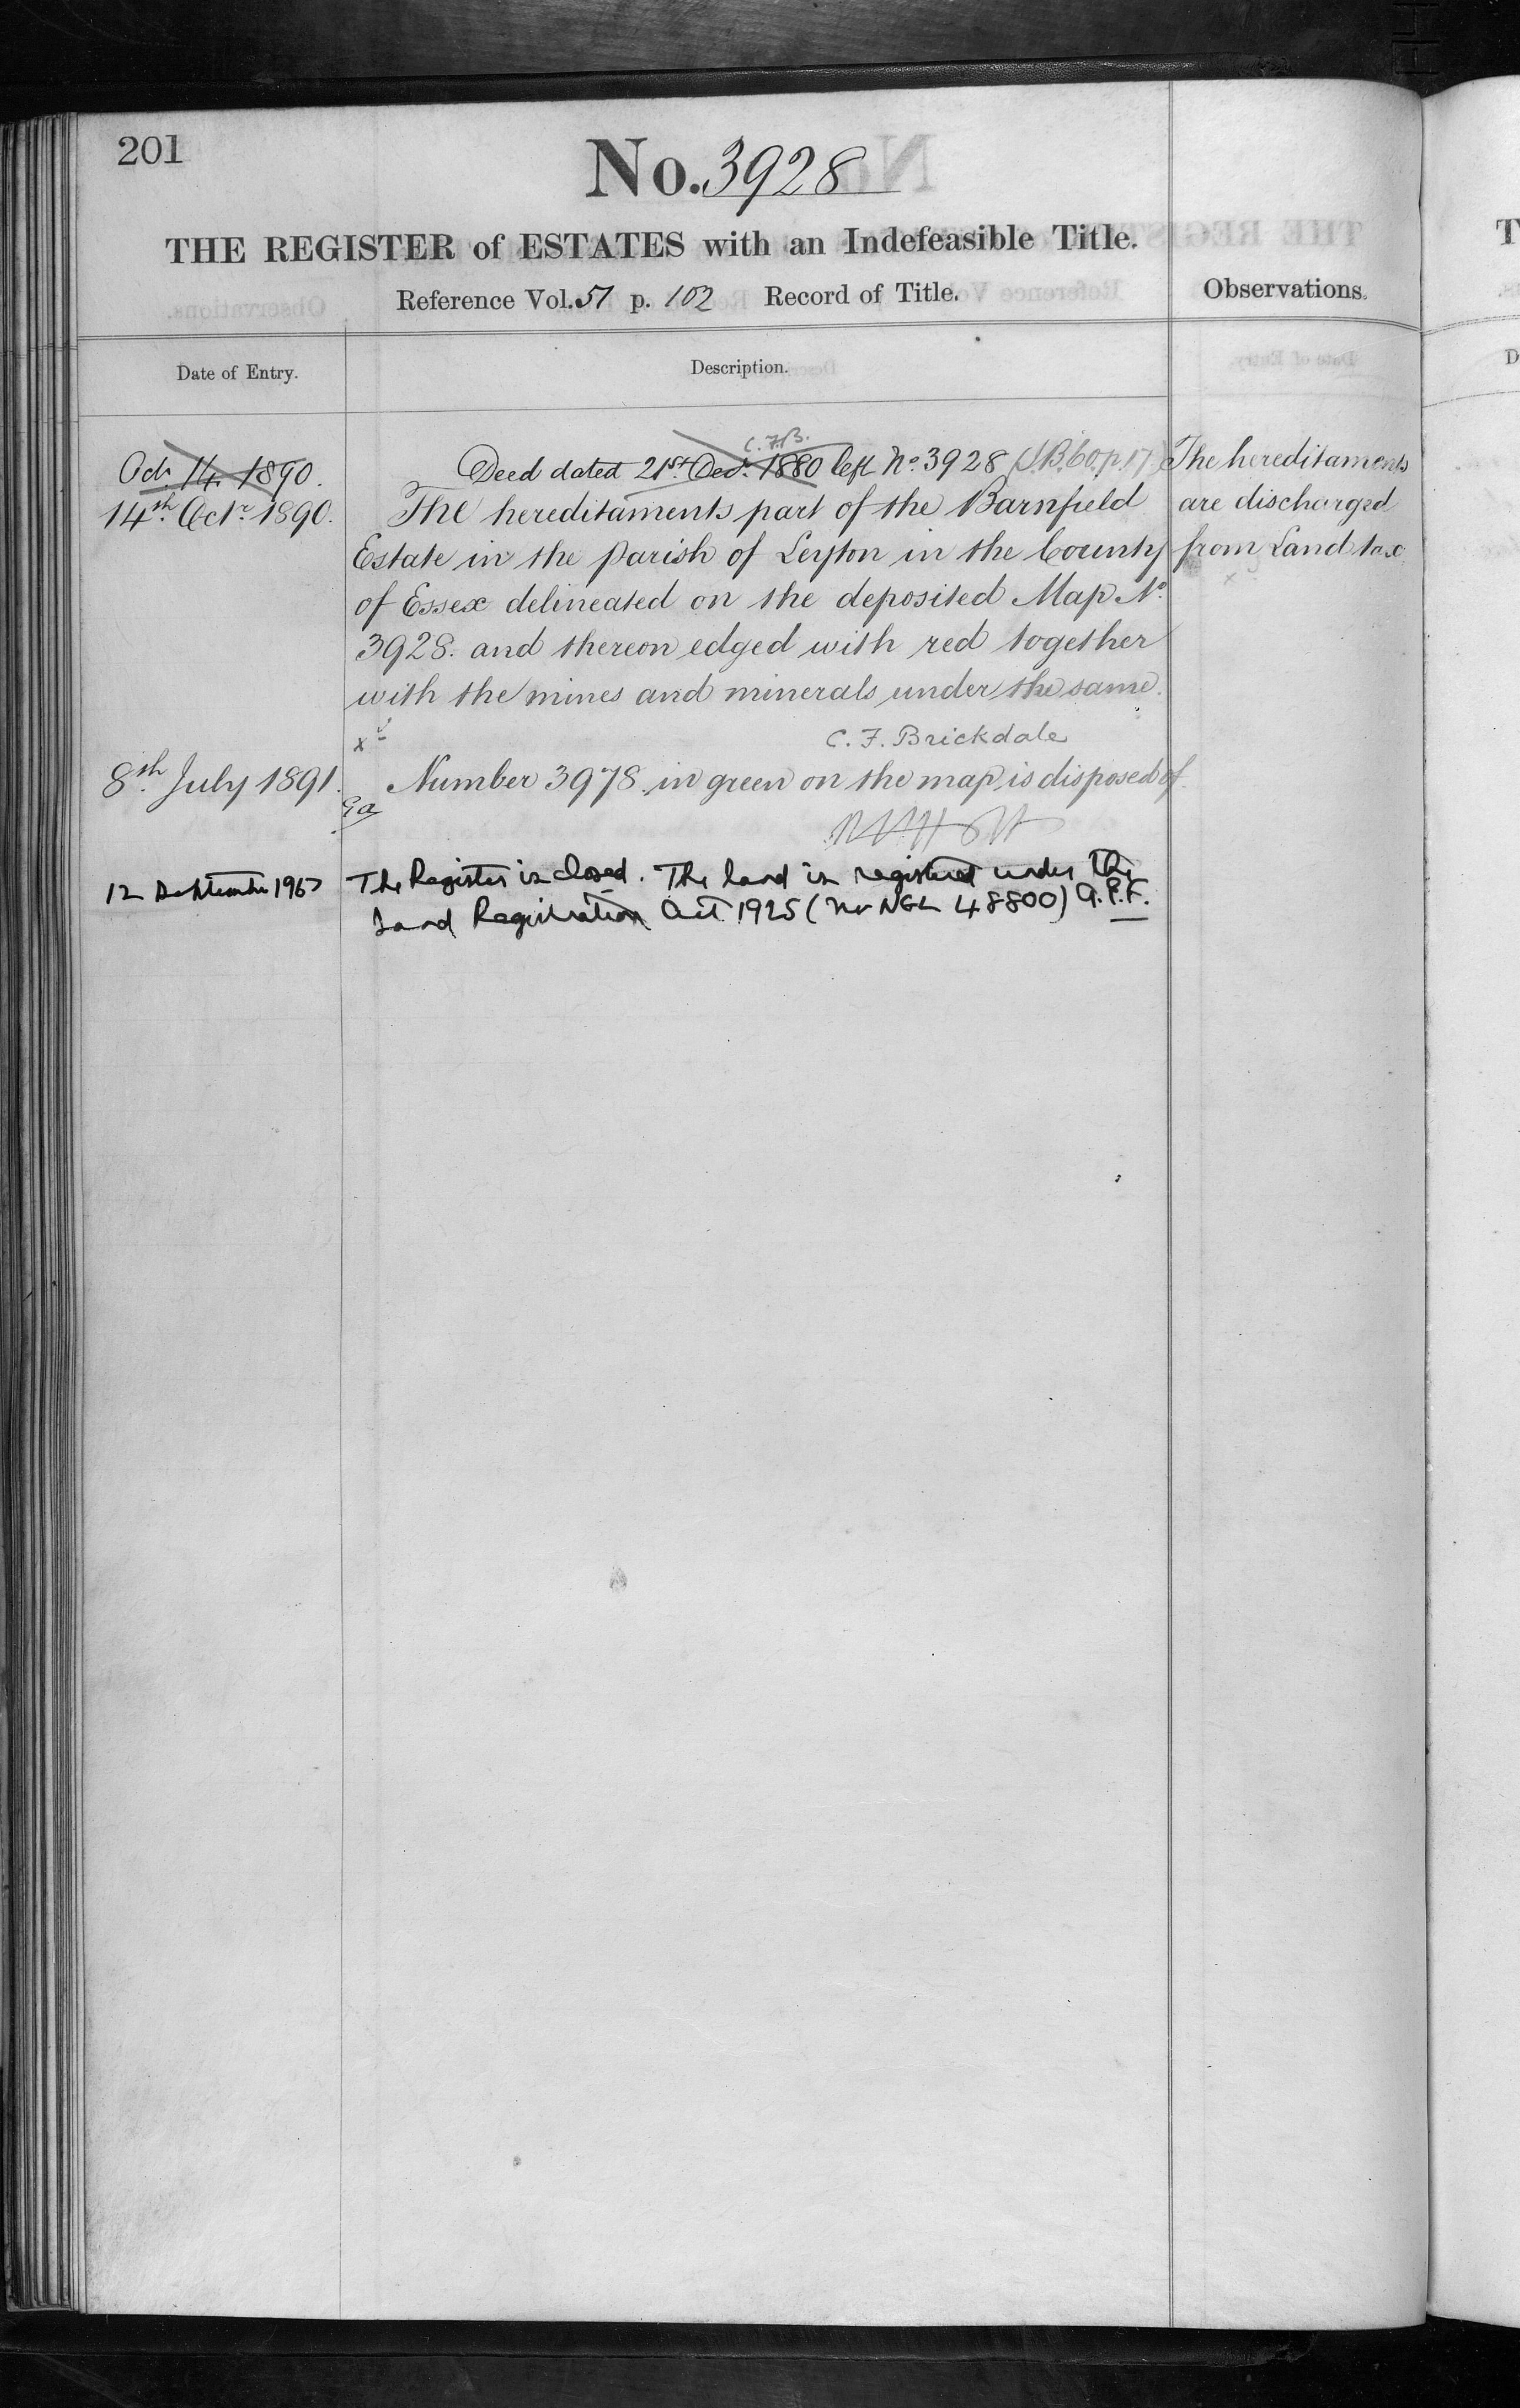 201
No. 3928
THE REGISTER of ESTATES with an Indefeasible Title.
Reference Vol. 51 p. 102 Record of Title.
Observations.
Date of Entry.
Description.
C.F.B.
Octr 14. 1890.
Deed dated 21st Decr 1880 left No. 3928 (J.B. 60. p. 17)
14th Octr 1890.
The hereditaments part of the Barnfield
Estate in the parish of Leyton in the County
of Essex delineated on the deposited Map No.
3928. and thereon edged with red together
with the mines and minerals under the same.
C. F. Brickdale
The hereditaments
are discharged
from Land tax
8th July 1891.
Number 3978 in green on the map is disposed of.
12 September 1967
The Register is closed. The land is registered under the
Land Registration Act 1925 (No NGL 48800) A.P.F.